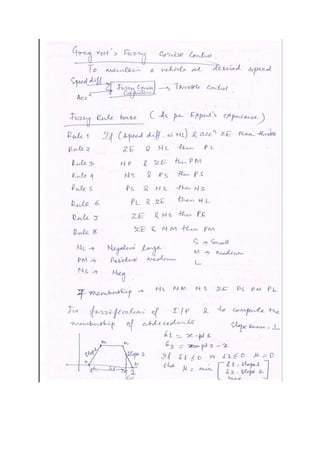 Greg Viot's Fuzzy Cruise Control
To maintain a vehicle at desired speed
Speed diff → Fuzzy Cruise Control → Throttle Control.
Acc
Fuzzy Rule base (As per Expert's experience)
Rule 1 If (Speed diff. is NL) & accn ZE then
Rule 2 ZE & NL then PL
Rule 3 NP & ZE then PM
Rule 4 NS & PS then PS
Rule 5 PS & NS then NS
Rule 6 PL & ZE then NL
Rule 7 ZE & NS then PS
Rule 8 ZE & NM then PM
NL → Negative large S → Small
PM → Positive medium M → medium
NS → Neg L
7 membership → NL NM NS ZE PS PM PL
For fuzzification of I/P & to compute the
membership of antecedents
δ1 = x - pt1
δ2 = pt2 - x
If δ1 ≤ 0 or δ2 ≤ 0 μ = 0
else μ = min [ δ1 · slope 1
δ2 · slope 2
slope 1
slope 2